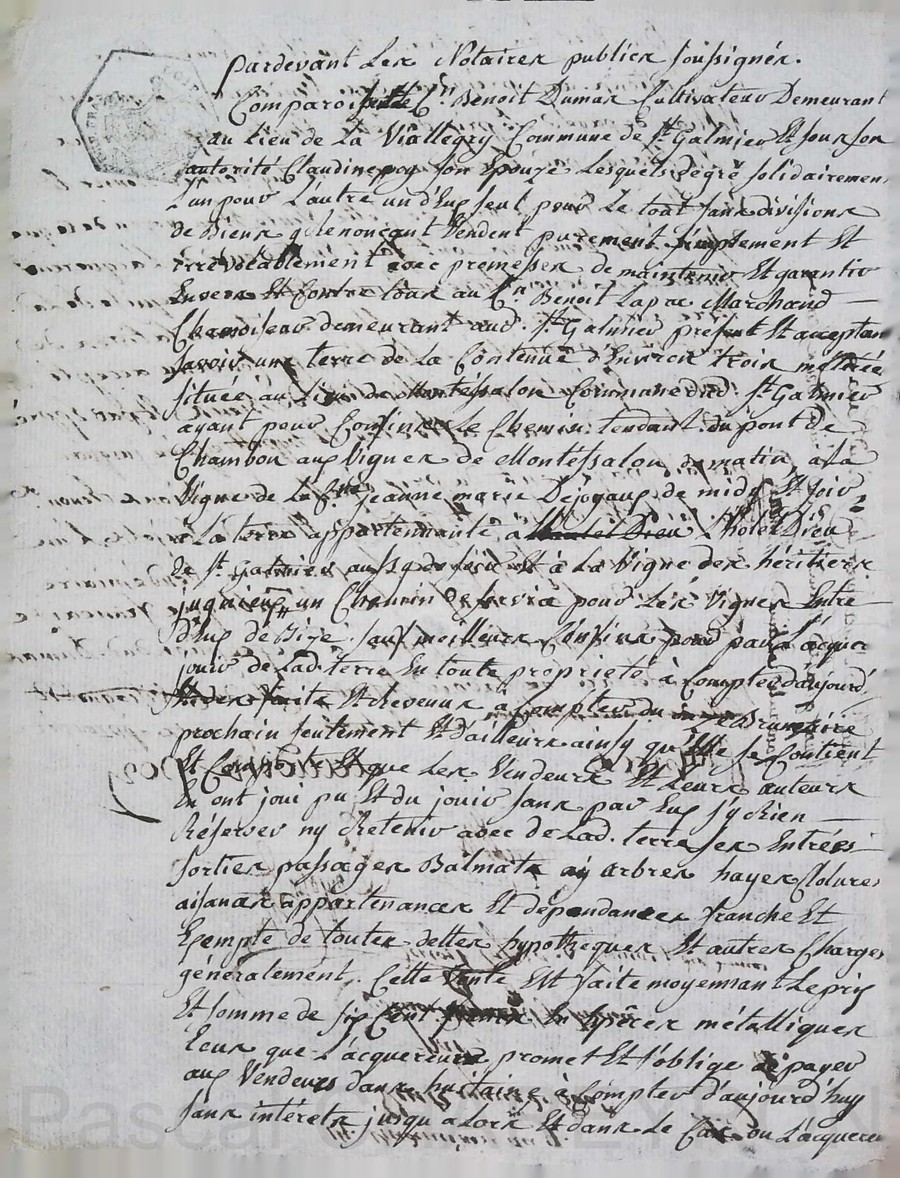 Pardevant Les Notaires publics soussignés.
Comparoissent le Cn. Benoit Dumas Cultivateur Demeurant
au Lieu de La Viallegry Commune de St. Galmier Et sous son
autorité Claudine poy son Epouze Lesquels degré solidairement
L'un pour L'autre un d'Eux seul pour Le tout sans divisions
de Biens y Renonçant Vendent purement simplement Et
irrévocablement avec promesses de maintenir Et garentir
Envers Et Contre tous au Cn. Benoit Marchand
Chamoiseur demeurant aud. St Galmier présent Et acceptant
savoir une terre de La Contenue d'Environ trois
située au Lieu de Montessalon Commune dud. St Galmier
ayant pour Confins Le Chemin tendant du pont de
Chambon aux Vignes de Montessalon de matin, a La
Vigne de La Jeanne marie Dejoyaux de midy Et soir
a La terre appartenante à L'hotel Dieu
de St. Galmier aussy de soir Et à La Vigne des héritiers
un Chemin de service pour Les Vignes Entre
d'Eux de Bize. sauf meilleurs Confins pour par L'acque
jouir de Lad. terre En toute proprieté à Compter d'aujourd
Et Revenus à Compter du
prochain seulement Et d'ailleurs ainsy qu'Elle se Contient
Et Comporte Et que Les Vendeurs Et Leurs auteurs
En ont joui pu Et du jouir sans par Eux s'y Rien
Réserver ny Retenir avec de Lad. terre ses Entrées
sorties passages Balmats arbres hayes Clotures
aisances appartenances Et dépendances franche Et
Exempte de toutes dettes hypotheques Et autres Charges
généralement. Cette Vente Est faite moyennant Le prix
Et somme de six Cent francs En Espèces métalliques
Ecus que L'acquereur promet Et s'oblige de payer
aux Vendeurs dans huitaine à Compter d'aujourd'huy
sans intérets jusqu'a Lors Et dans Le Cas ou L'acquereur
Pascal